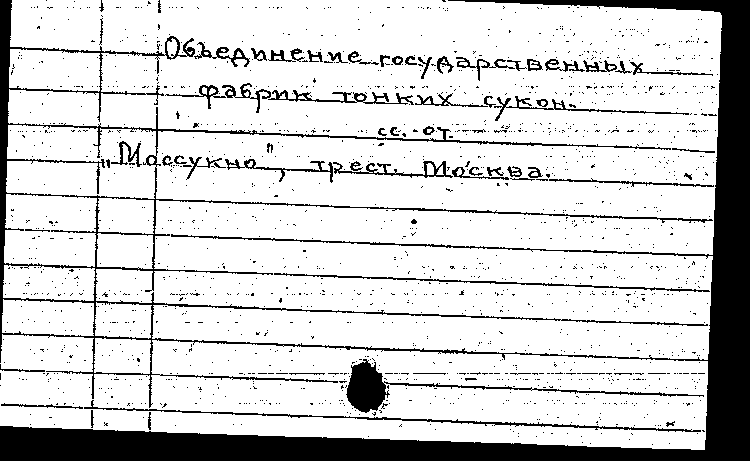 Объединение государственных
фабрик тонких сукон.
сс. от.
„Моссукно", трест. Москва.